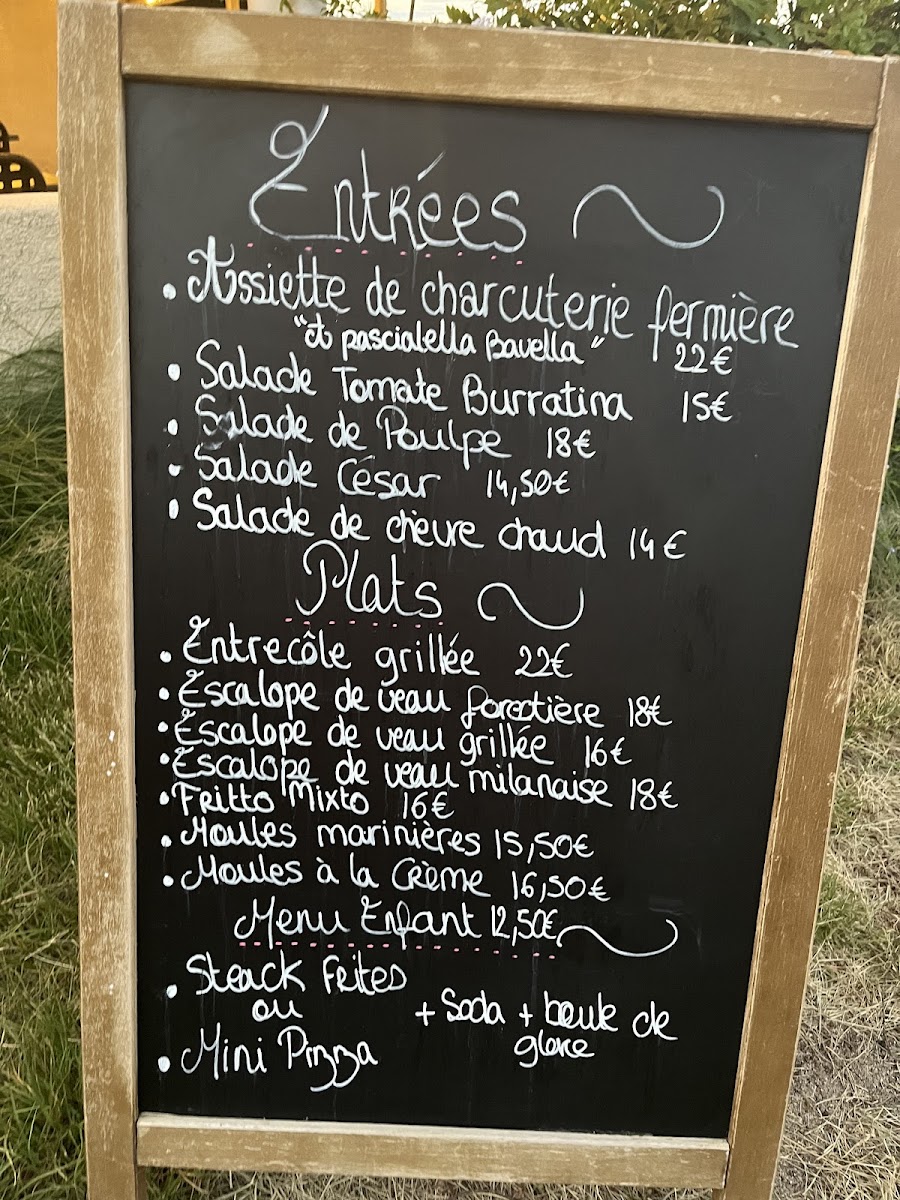 Entrées
• Assiette de charcuterie fermière
"A pascialella Bavella" 22€
• Salade Tomate Burratina 15€
• Salade de Poulpe 18€
• Salade César 14,50€
• Salade de chèvre chaud 14€
Plats
• Entrecôle grillée 22€
• Escalope de veau forestière 18€
• Escalope de veau grillée 16€
• Escalope de veau milanaise 18€
• Fritto Mixto 16€
• Moules marinières 15,50€
• Moules à la Crème 16,50€
Menu Enfant 12,50€
• Steack Frites
ou + Soda + boule de
glace
• Mini Pizza